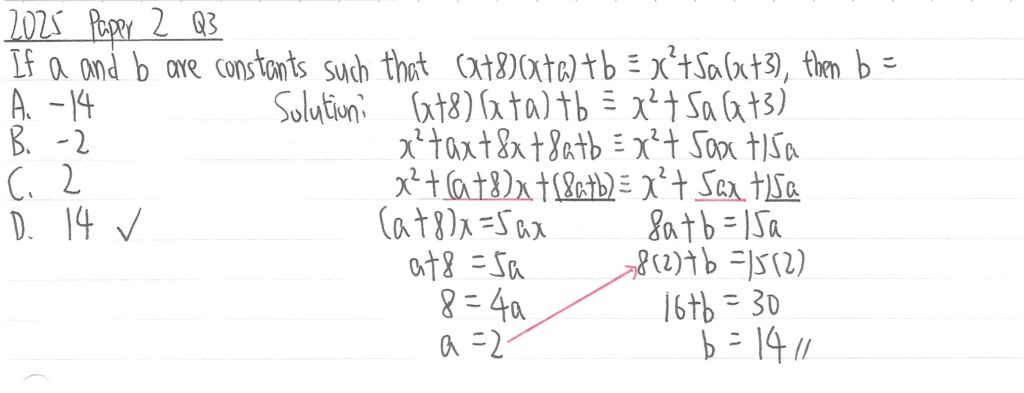 2025 Paper 2 Q3
If a and b are constants such that (x+8)(x+a)+b ≡ x²+5a(x+3), then b =
A. -14
B. -2
C. 2
D. 14 ✓
Solution: (x+8)(x+a)+b ≡ x²+5a(x+3)
x²+ax+8x+8a+b ≡ x²+5ax+15a
x²+(a+8)x+(8a+b) ≡ x²+5ax+15a
(a+8)x=5ax
a+8=5a
8=4a
a=2
8a+b=15a
8(2)+b=15(2)
16+b=30
b=14 //